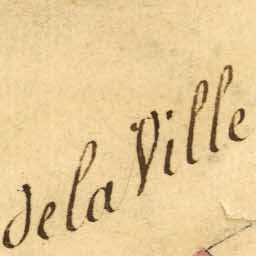 de la Ville